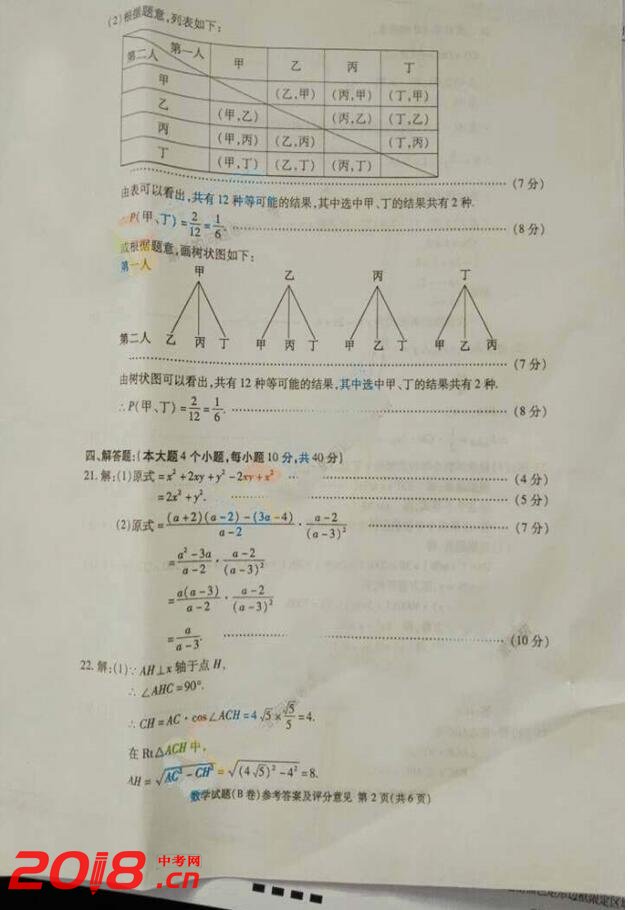 (2)根据题意,列表如下:
第一人 第二人 甲 乙 丙 丁
甲 (乙,甲) (丙,甲) (丁,甲)
乙 (甲,乙) (丙,乙) (丁,乙)
丙 (甲,丙) (乙,丙) (丁,丙)
丁 (甲,丁) (乙,丁) (丙,丁)
(7分)
由表可以看出,共有12种等可能的结果,其中选中甲、丁的结果共有2种.
∴P(甲、丁)=2/12=1/6. (8分)
或根据题意,画树状图如下:
第一人 甲 乙 丙 丁
第二人 乙 丙 丁 甲 丙 丁 甲 乙 丁 甲 乙 丙
(7分)
由树状图可以看出,共有12种等可能的结果,其中选中甲、丁的结果共有2种.
∴P(甲、丁)=2/12=1/6. (8分)
四、解答题:(本大题4个小题,每小题10分,共40分)
21.解:(1)原式=x²+2xy+y²-2xy+x² (4分)
=2x²+y². (5分)
(2)原式=((a+2)(a-2)-(3a-4))/(a-2)·(a-2)/(a-3)² (7分)
=(a²-3a)/(a-2)·(a-2)/(a-3)²
=a(a-3)/(a-2)·(a-2)/(a-3)²
=a/(a-3). (10分)
22.解:(1)∵AH⊥x轴于点H,
∴∠AHC=90°.
∴CH=AC·cos∠ACH=4√5×√5/5=4.
在Rt△ACH中,
AH=√(AC²-CH²)=√((4√5)²-4²)=8.
数学试题(B卷)参考答案及评分意见 第2页(共6页)
2018中考网.cn